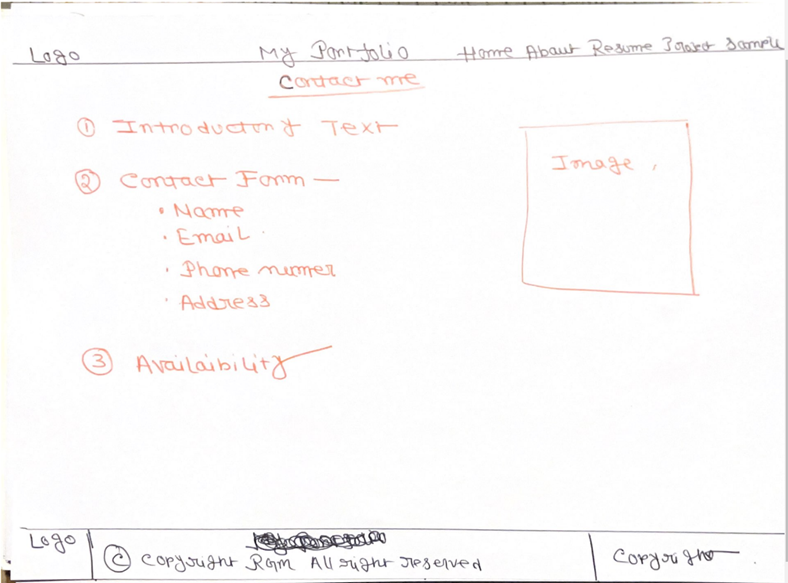 Logo My Portfolio Home About Resume Project Sample
Contact me
① Introductory Text
② Contact Form —
• Name
• Email
• Phone numer
• Address
Image
③ Availaibility
Logo
© Copyright Ram All right reserved
Copyright